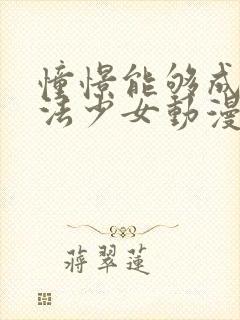 憧憬能够成
法少女動漫
蔣翠蓮